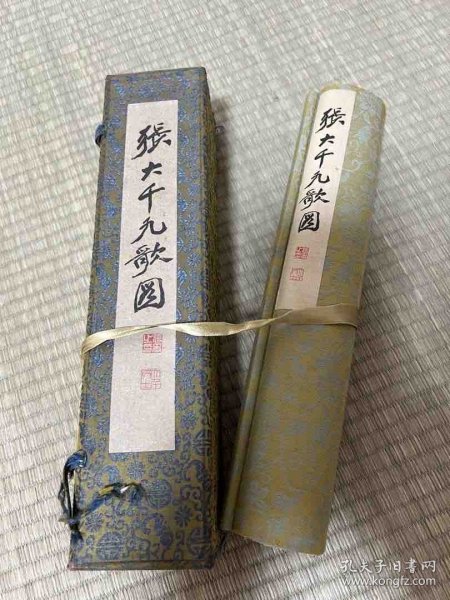 張大千九歌圖
張大千九歌圖
孔夫子旧书网
www.kongfz.com